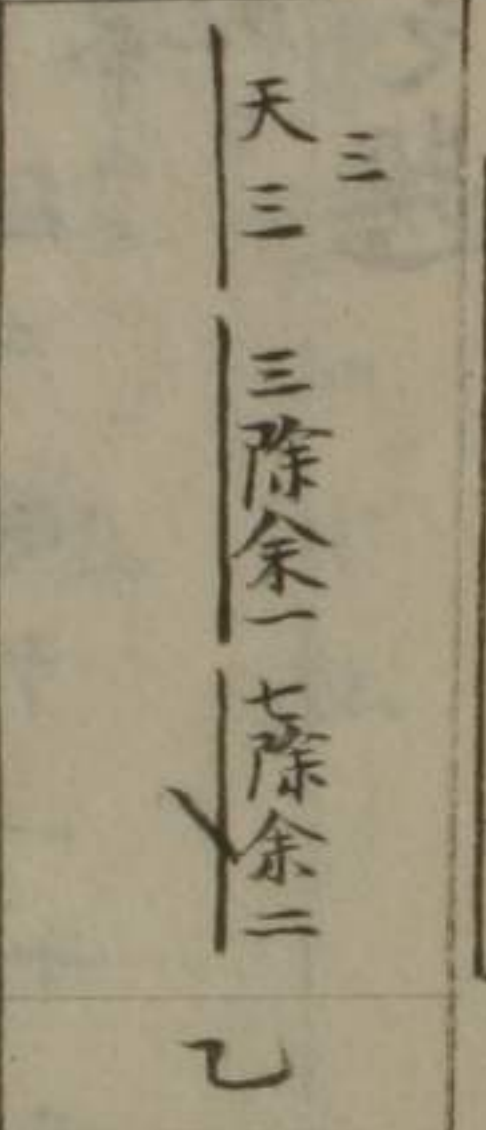 三
天三 三除余一 七除余二
乙